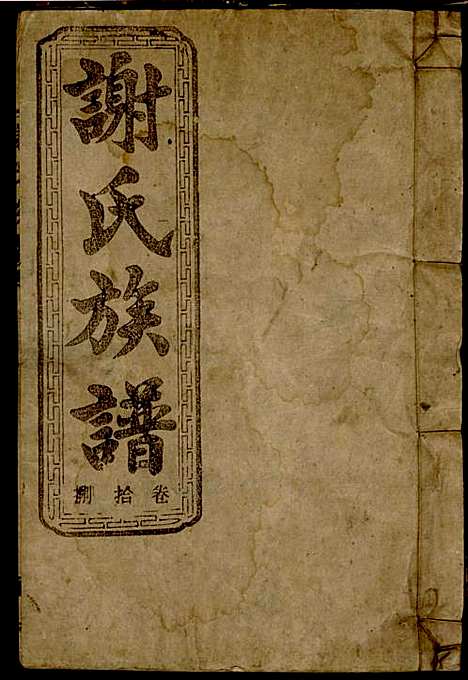 謝氏族譜
卷拾捌